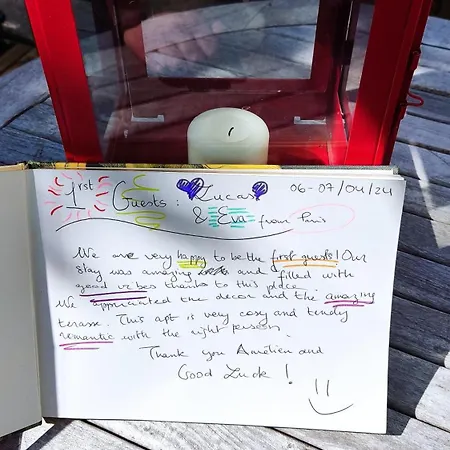 1rst Guests : Lucas 06-07/04/24
& Eva from Paris
We are very happy to be the first guests! Our
stay was amazing and filled with
good vibes thanks to this place.
We appreciated the decor and the amazing
terasse. This apt is very cosy and
romantic with the right person.
Thank you Amélien and
Good Luck !